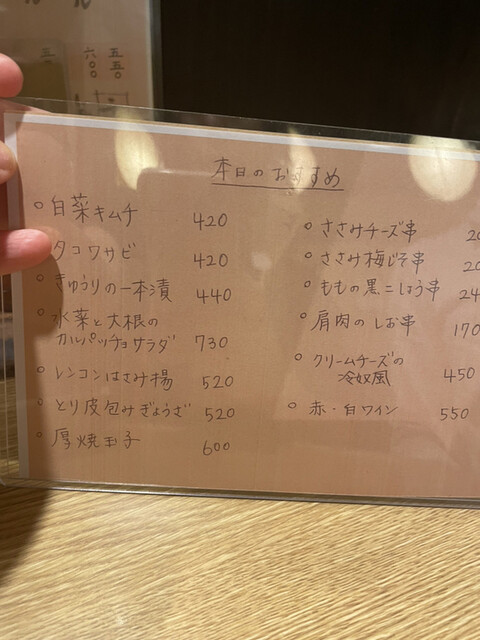 五五〇
六〇〇
本日のおすすめ
○白菜キムチ 420
タコワサビ 420
○きゅうりの一本漬 440
○水菜と大根の
カルパッチョサラダ 730
○レンコンはさみ揚 520
○とり皮包みぎょうざ 520
○厚焼玉子 600
○ささみチーズ串
○ささみ梅じそ串
○ももの黒こしょう串
○肩肉のしお串 170
○クリームチーズの
冷奴風 450
○赤・白ワイン 550